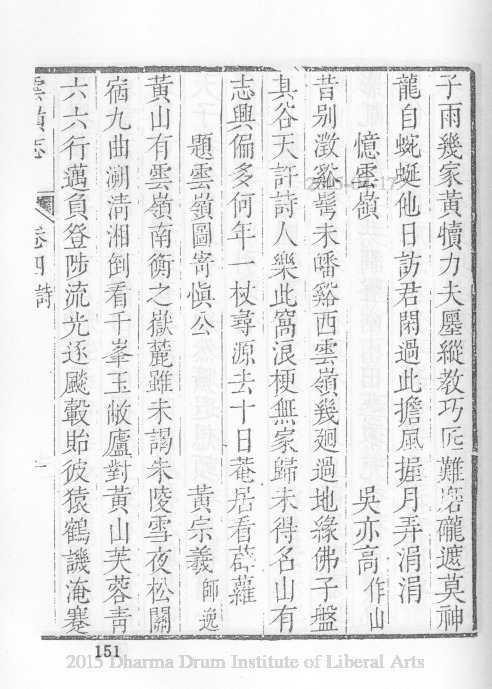 子雨幾家黃犢力夫鏖縱教巧匠難磨礲遮莫神
龍自蜿蜒他日訪君閑過此擔風握月弄涓涓
憶雲嶺 吳亦高作山
昔別澂谿鬢未皤谿西雲嶺幾廻過地緣佛子盤
具谷天許詩人樂此窩浪梗無家歸未得名山有
志興偏多何年一杖尋源去十日菴居看薜蘿
題雲嶺圖寄愼公 黃宗羲師逸
黃山有雲嶺南衡之嶽麓雖未謁朱陵雪夜松關
宿九曲溯淸湘倒看千峯玉敝廬對黃山芙蓉靑
六六行邁負登陟流光逐飈轂貽彼猿鶴譏淹蹇
雲嶺志 卷四詩 一
151
2015 Dharma Drum Institute of Liberal Arts